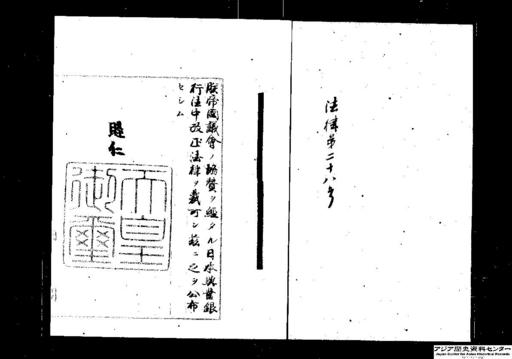 法律第二十八号
朕帝國議會ノ協賛ヲ經タル日本興業銀
行法中改正法律ヲ裁可シ茲ニ之ヲ公布
セシム
睦仁
天皇
御璽
アジア歴史資料センター
Japan Center for Asian Historical Records